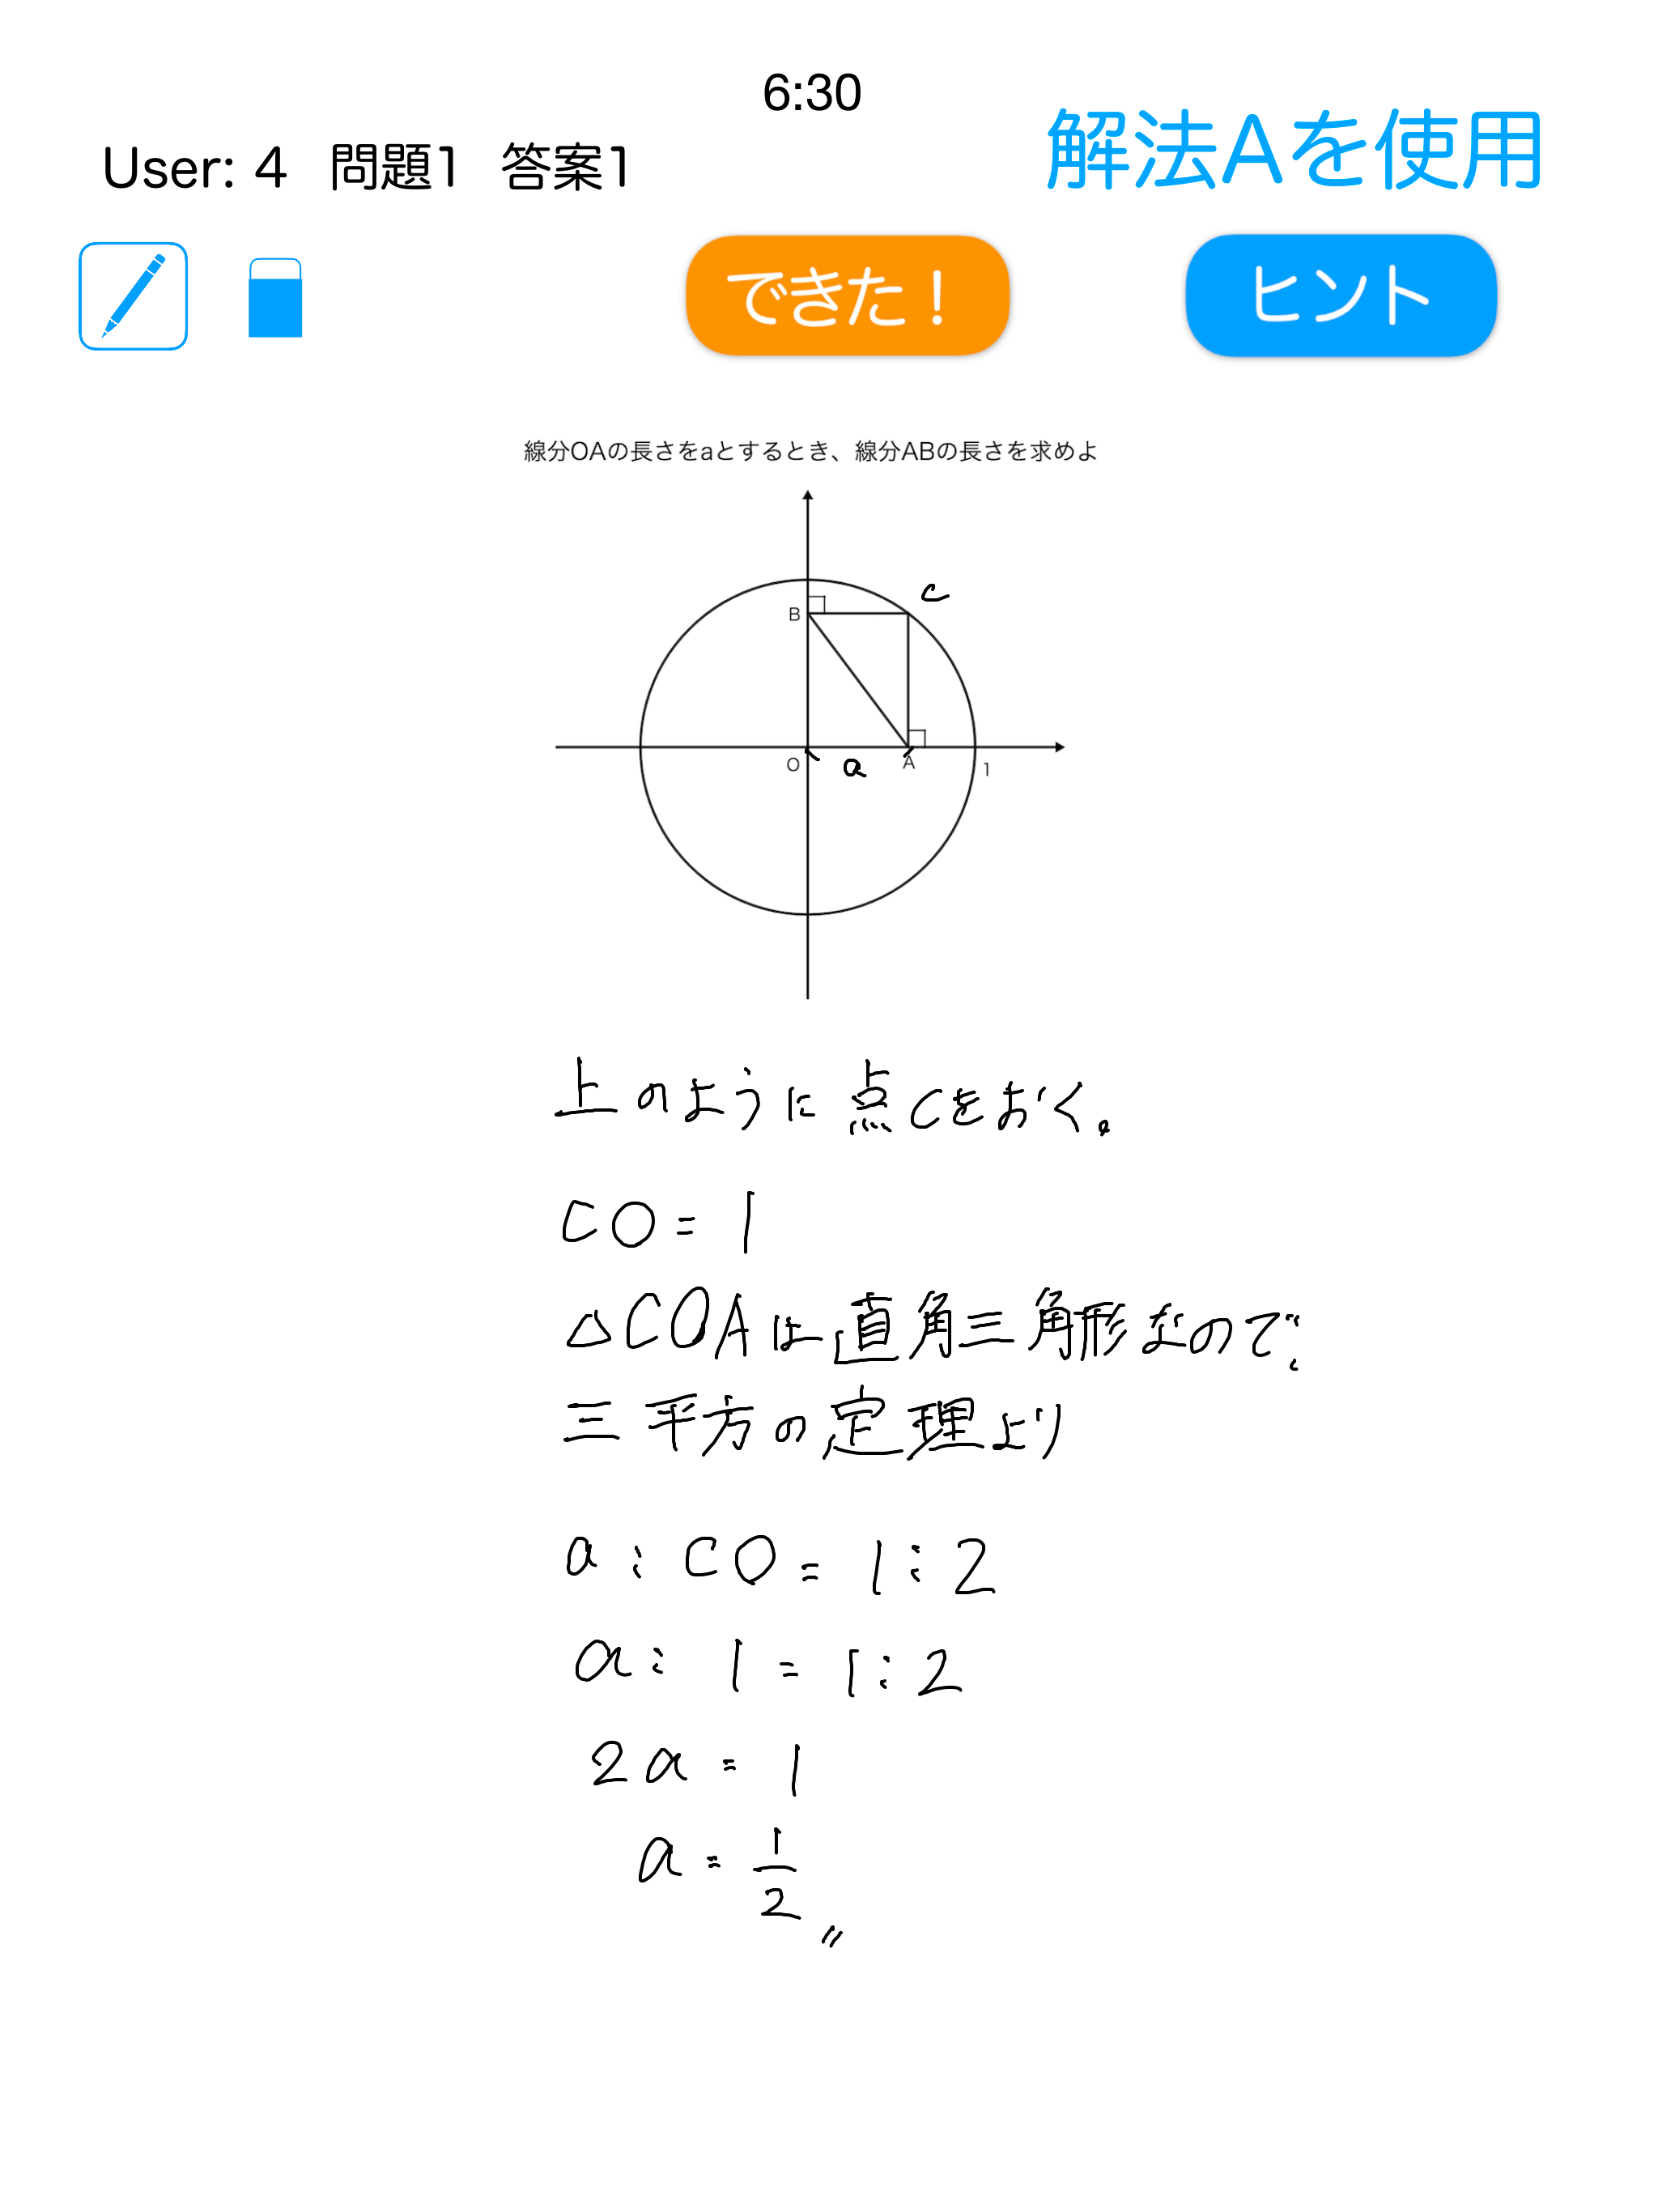 6:30
User: 4 問題1 答案1
解法Aを使用
できた！
ヒント
線分OAの長さをaとするとき、線分ABの長さを求めよ
B
C
O
a
A
1
上のように点Cをおく。
CO = 1
△COAは直角三角形なので、
三平方の定理より
a : CO = 1 : 2
a : 1 = 1 : 2
2a = 1
a = 1/2 〃